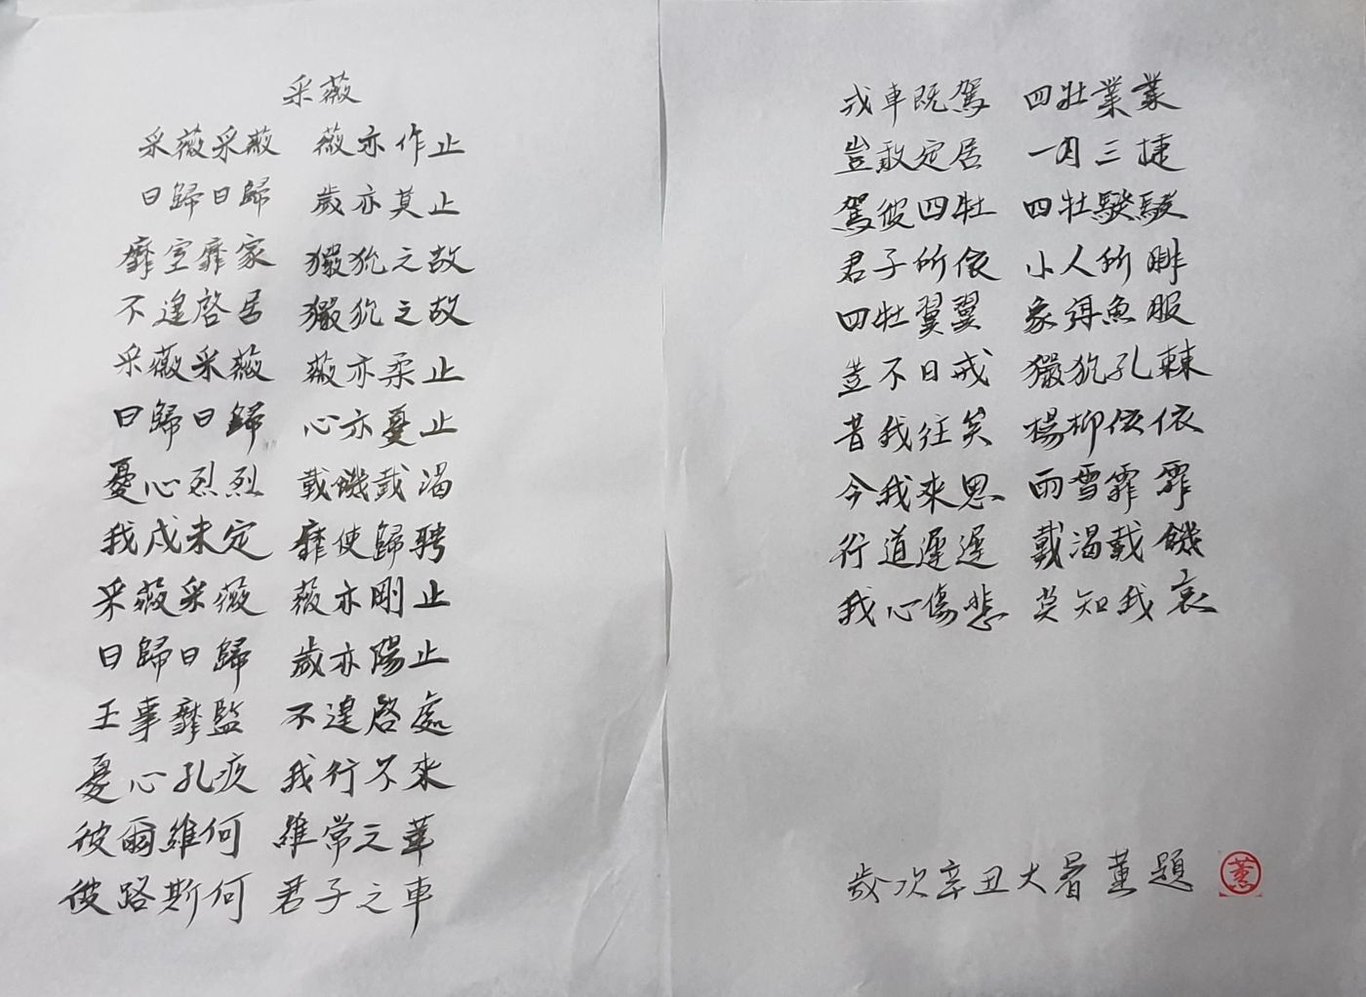 采薇
采薇采薇 薇亦作止
曰歸曰歸 歲亦莫止
靡室靡家 玁狁之故
不遑啓居 玁狁之故
采薇采薇 薇亦柔止
曰歸曰歸 心亦憂止
憂心烈烈 載饑載渴
我戍未定 靡使歸聘
采薇采薇 薇亦剛止
曰歸曰歸 歲亦陽止
王事靡監 不遑啓處
憂心孔疚 我行不來
彼爾維何 維常之華
彼路斯何 君子之車
戎車既駕 四牡業業
豈敢定居 一月三捷
駕彼四牡 四牡騤騤
君子所依 小人所腓
四牡翼翼 象弭魚服
豈不日戒 玁狁孔棘
昔我往矣 楊柳依依
今我來思 雨雪霏霏
行道遲遲 載渴載饑
我心傷悲 莫知我哀
歲次辛丑大暑董題
董